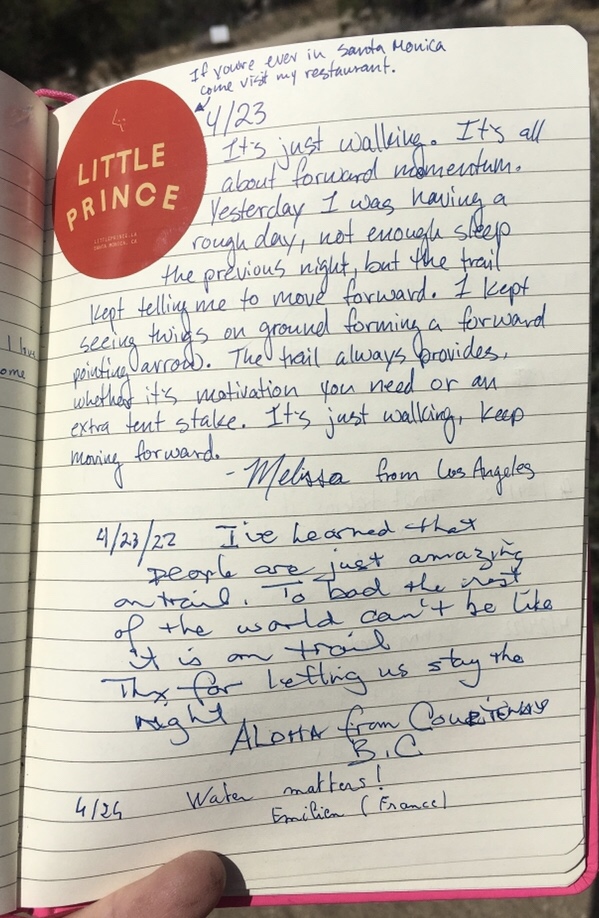 If you're ever in Santa Monica
come visit my restaurant.
4/23
LITTLE
PRINCE
LITTLEPRINCE.LA
SANTA MONICA, CA
It's just walking. It's all
about forward momentum.
Yesterday I was having a
rough day, not enough sleep
the previous night, but the trail
kept telling me to move forward. I kept
seeing twigs on ground forming a forward
pointing arrow. The trail always provides,
whether it's motivation you need or an
extra tent stake. It's just walking, keep
moving forward.
- Melissa from Los Angeles
4/23/22 I've learned that
people are just amazing
on trail. To bad the rest
of the world can't be like
it is on trail
Thx for letting us stay the
night
ALOHA from Courtenay
B.C
4/24 Water matters!
Emilien (France)
I love
ome